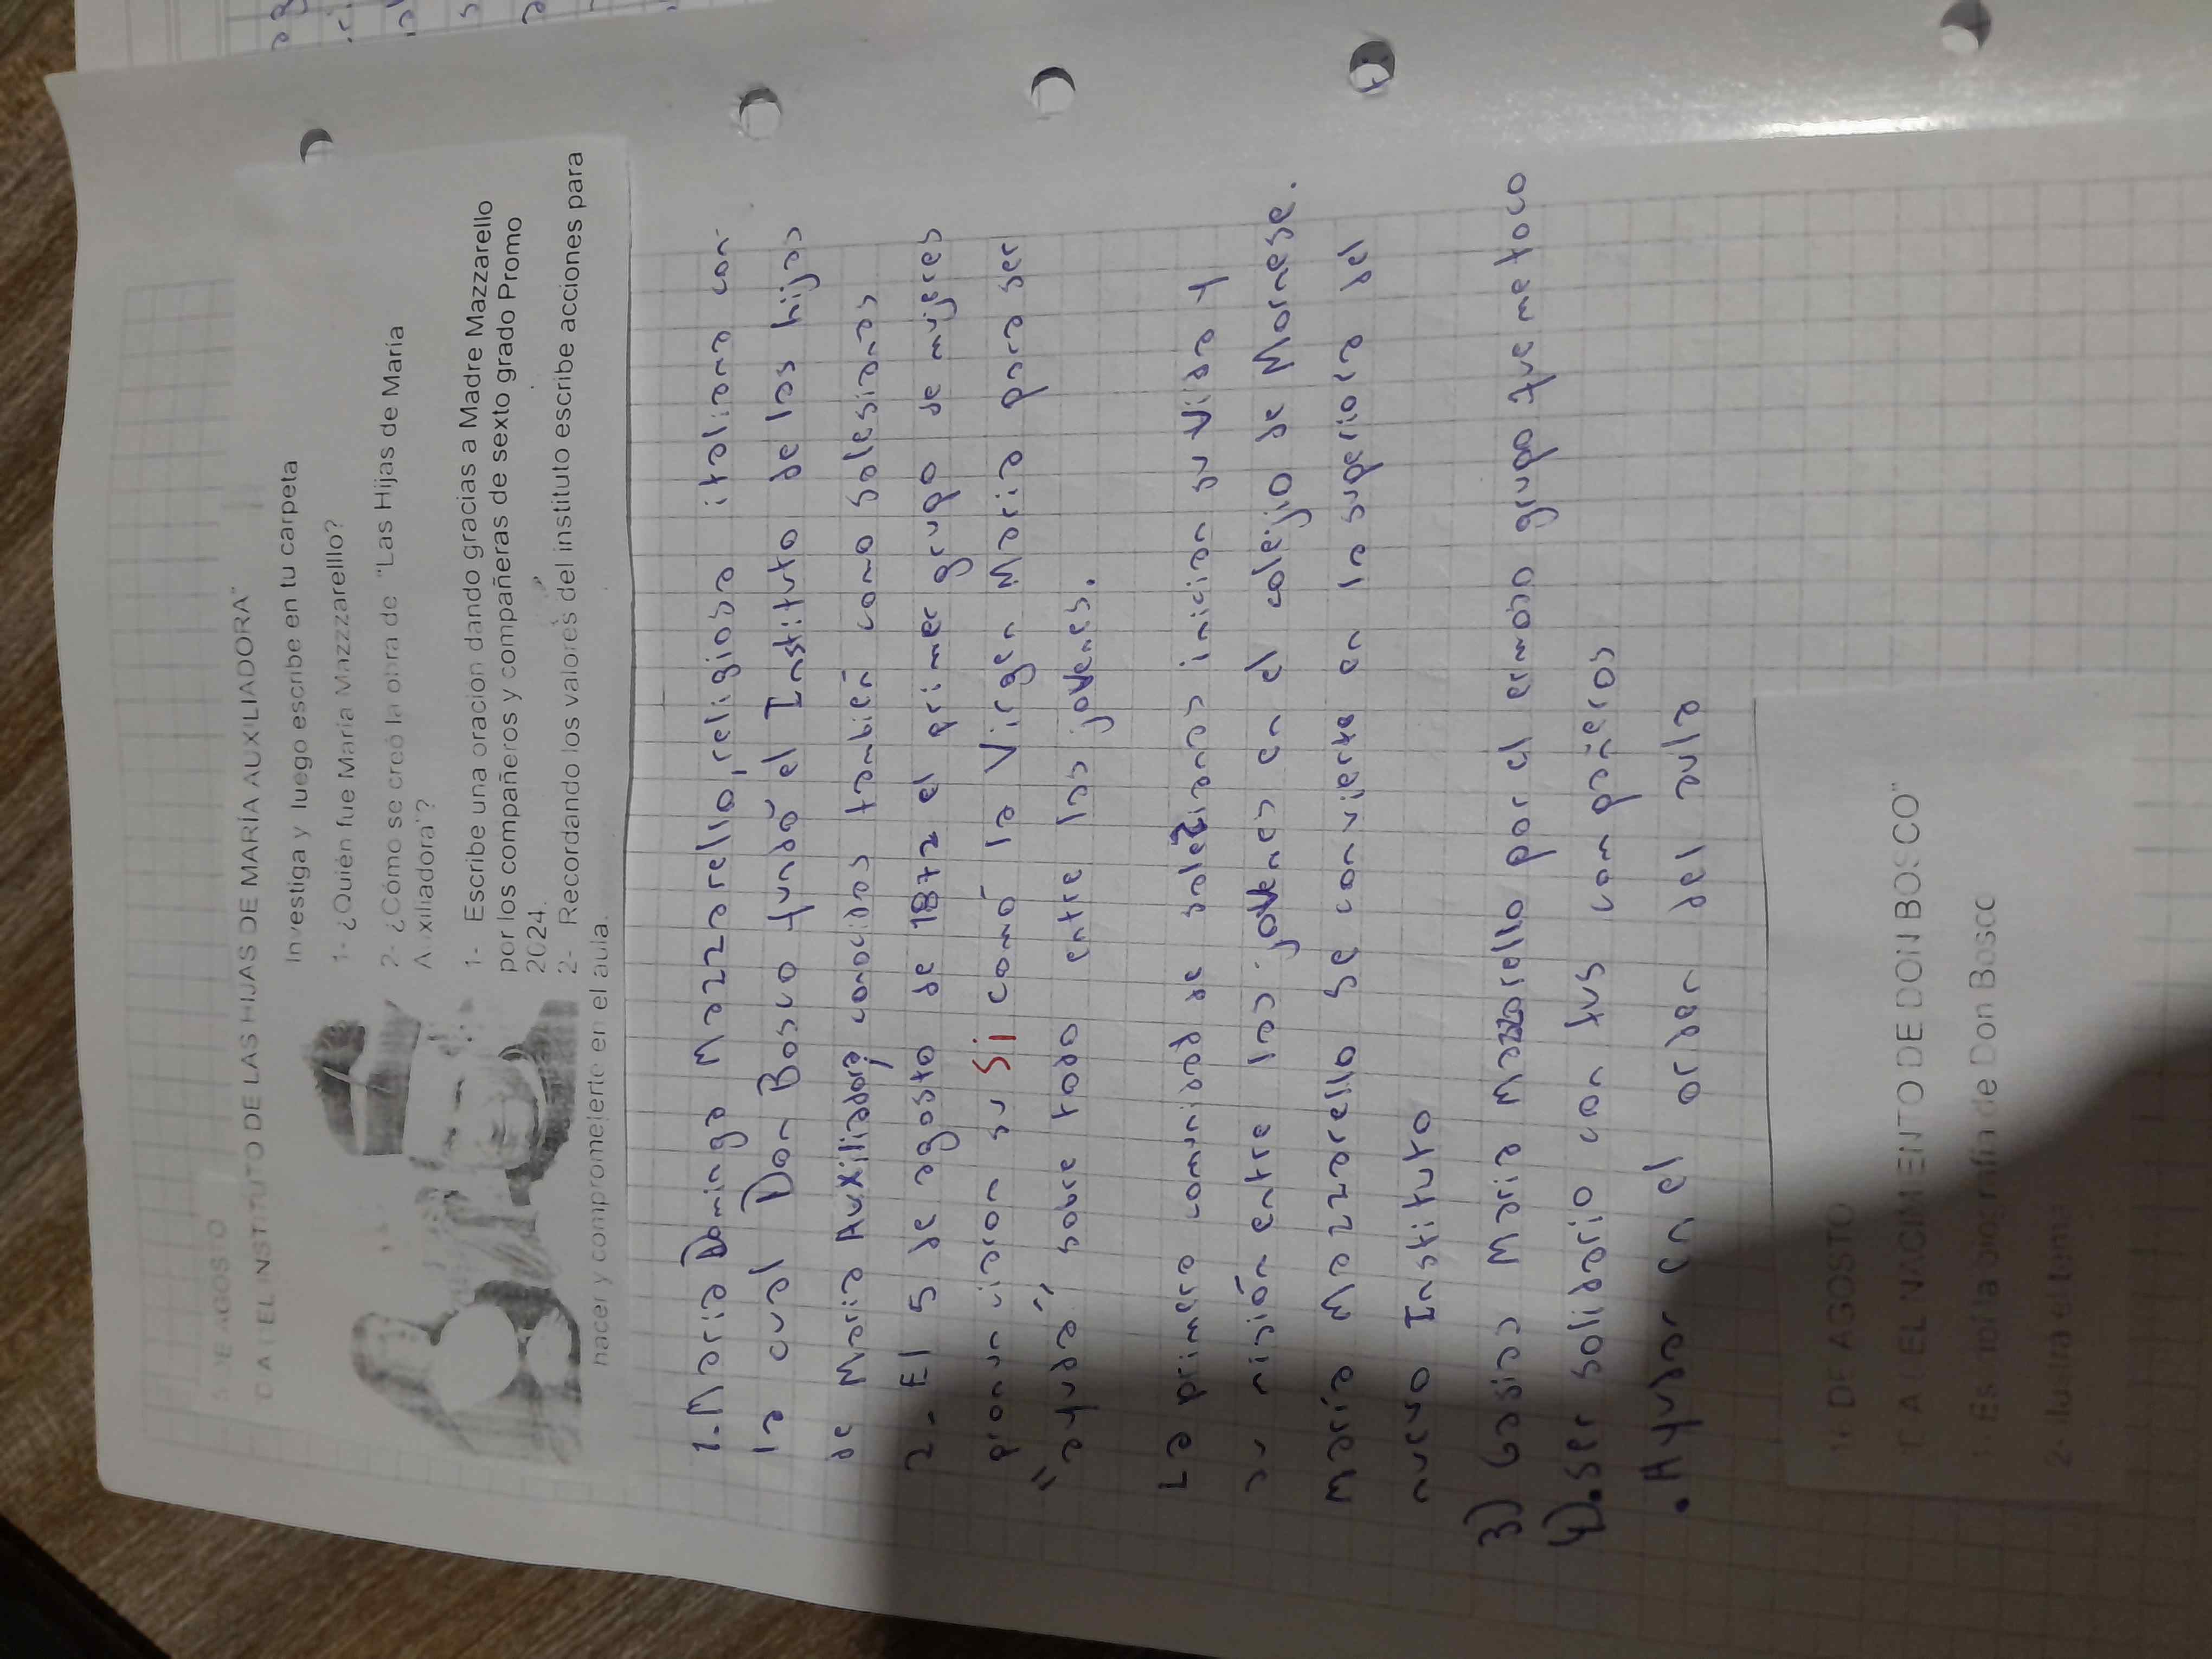 5 DE AGOSTO
DIA DEL INSTITUTO DE LAS HIJAS DE MARÍA AUXILIADORA"
Investiga y luego escribe en tu carpeta
1- ¿Quién fue María Mazzzarelllo?
2- ¿Cómo se creó la obra de "Las Hijas de María
Auxiliadora"?
1- Escribe una oracion dando gracias a Madre Mazzarello
por los compañeros y compañeras de sexto grado Promo
2024.
2- Recordando los valores del instituto escribe acciones para
hacer y comprometerte en el aula.
1-Maria Dominga Mazzarello, religiosa italiana con
la cual Don Bosco fundó el Instituto de las hijas
de Maria Auxiliadora, conocidas también como salesianas
2- El 5 de agosto de 1872 el primer grupo de mujeres
pronunciaron su Si comó la Virgen Maria para ser
"ayuda" sobre todo entre las jovenes.
La primera comunidad de salesianas inician su vida y
su misión entre las jovenes en el colejio de Mornese.
Maria Mazzarello se convierte en la superiora del
nuevo Instituto
3) Gasias Maria Mazzarello por el ermoso grupo que me toco
4) • ser solidario con tus compañeros
• Ayudar en el orden del aula
16 DE AGOSTO
DIA DEL NACIMIENTO DE DON BOSCO"
1- Escribí la biografía de Don Bosco
2- Ilustra el tema